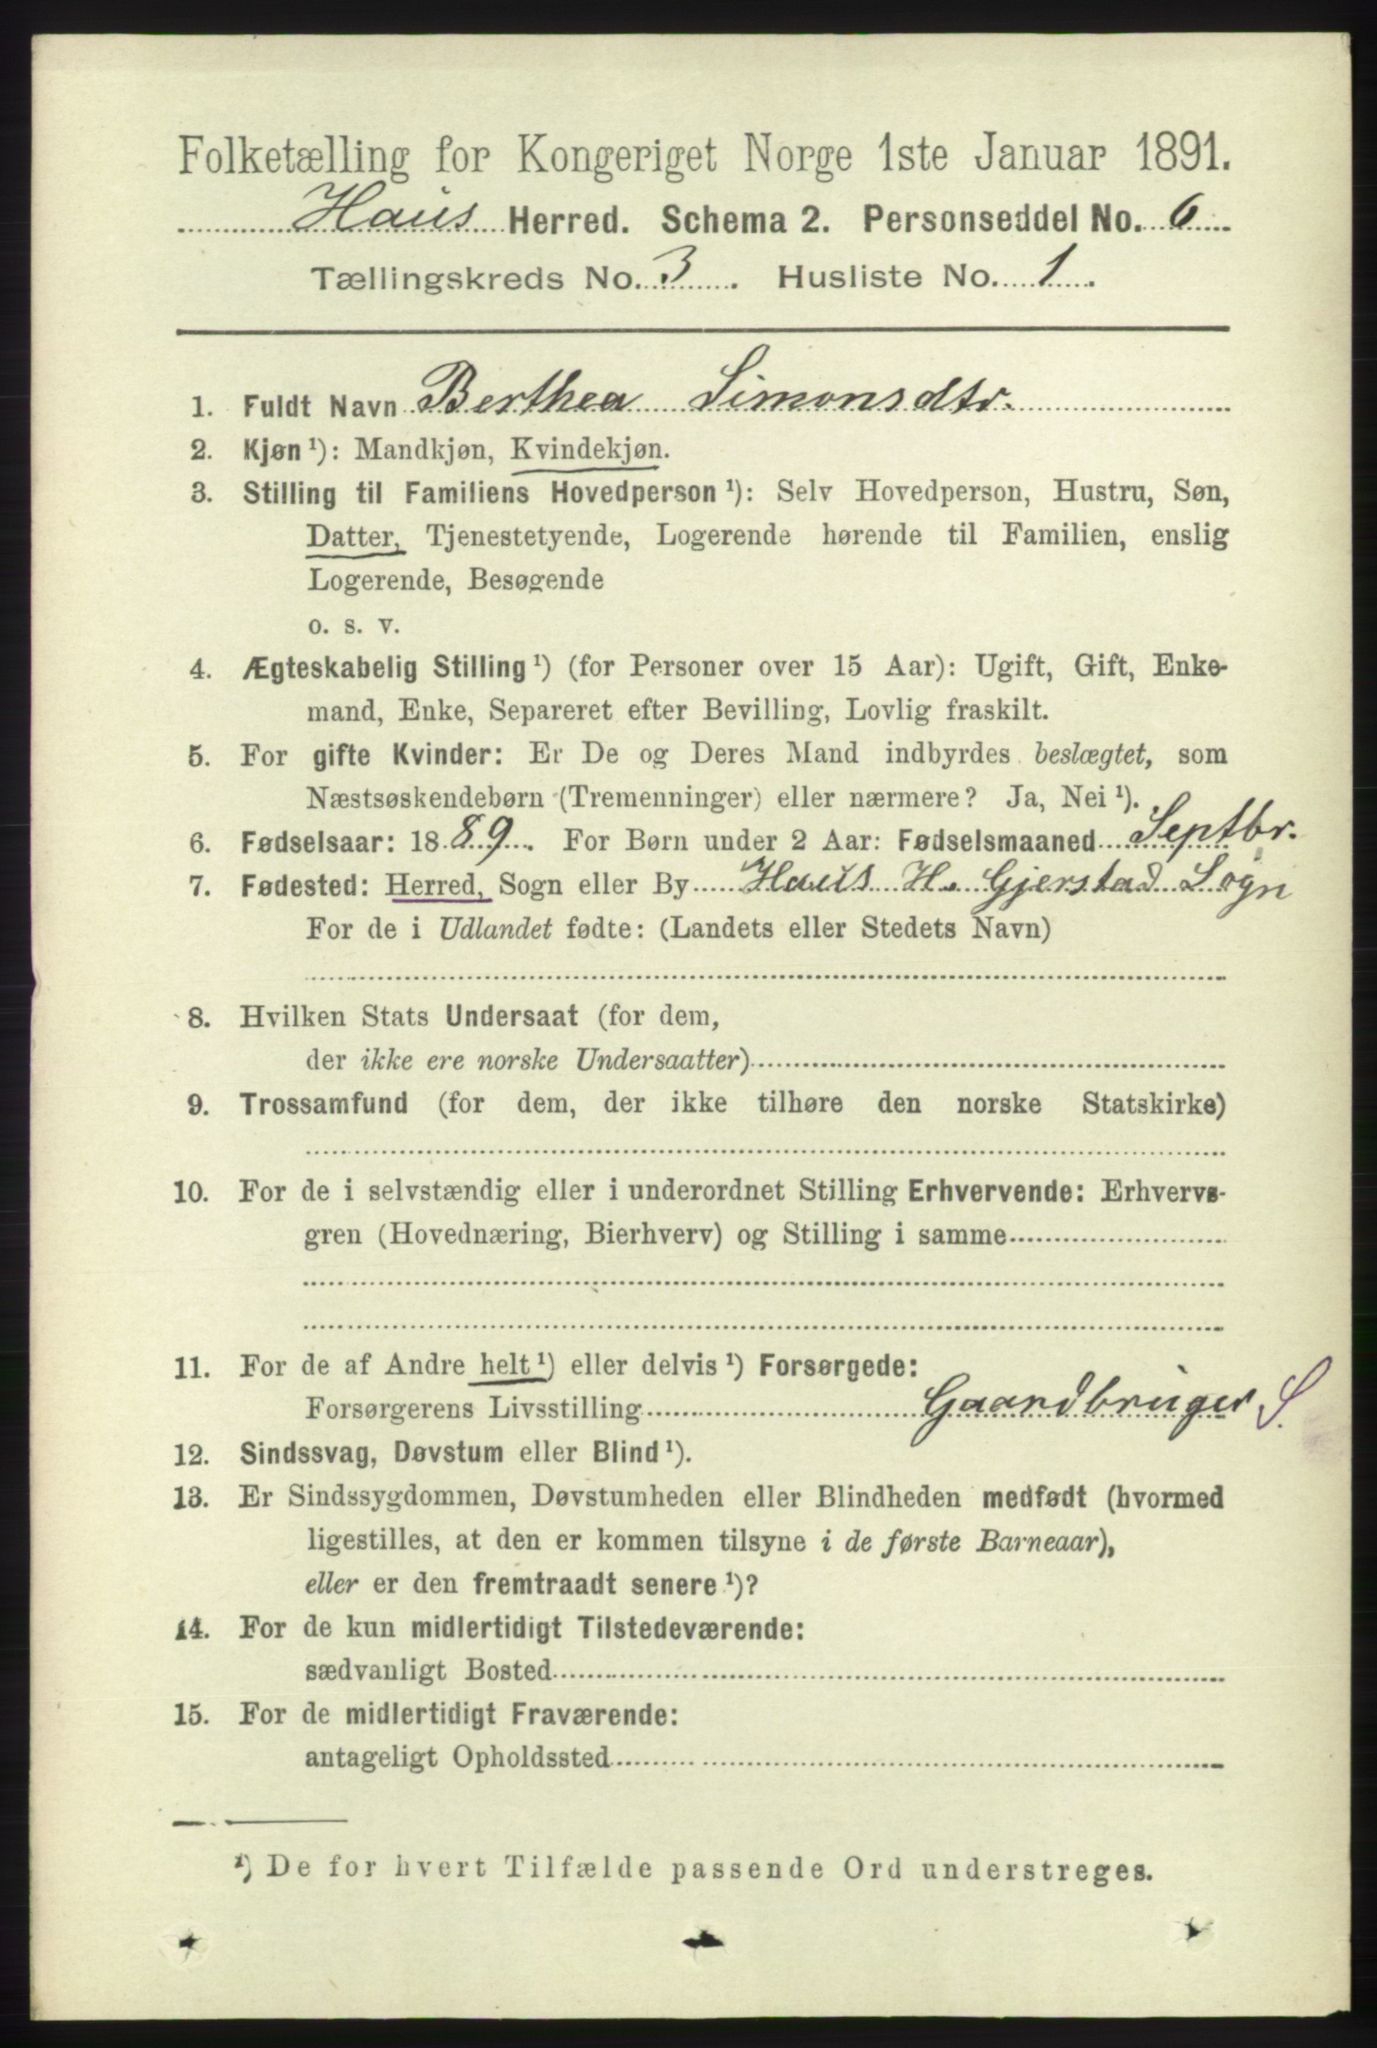 Folketælling for Kongeriget Norge 1ste Januar 1891.
Haus Herred. Schema 2. Personseddel No. 6
Tællingskreds No. 3. Husliste No. 1.
1. Fuldt Navn Berthea Simonsdtr.
2. Kjøn ¹): Mandkjøn, Kvindekjøn.
3. Stilling til Familiens Hovedperson ¹): Selv Hovedperson, Hustru, Søn,
Datter, Tjenestetyende, Logerende hørende til Familien, enslig
Logerende, Besøgende
o. s. v.
4. Ægteskabelig Stilling ¹) (for Personer over 15 Aar): Ugift, Gift, Enke-
mand, Enke, Separeret efter Bevilling, Lovlig fraskilt.
5. For gifte Kvinder: Er De og Deres Mand indbyrdes beslægtet, som
Næstsøskendebørn (Tremenninger) eller nærmere? Ja, Nei ¹).
6. Fødselsaar: 1889. For Børn under 2 Aar: Fødselsmaaned Septbr.
7. Fødested: Herred, Sogn eller By Haus H. Gjerstad Sogn
For de i Udlandet fødte: (Landets eller Stedets Navn)
8. Hvilken Stats Undersaat (for dem,
der ikke ere norske Undersaatter)
9. Trossamfund (for dem, der ikke tilhøre den norske Statskirke)
10. For de i selvstændig eller i underordnet Stilling Erhvervende: Erhvervs-
gren (Hovednæring, Bierhverv) og Stilling i samme
11. For de af Andre helt ¹) eller delvis ¹) Forsørgede:
Forsørgerens Livsstilling Gaardbruger S.
12. Sindssvag, Døvstum eller Blind ¹).
13. Er Sindssygdommen, Døvstumheden eller Blindheden medfødt (hvormed
ligestilles, at den er kommen tilsyne i de første Barneaar),
eller er den fremtraadt senere ¹)?
14. For de kun midlertidigt Tilstedeværende:
sædvanligt Bosted
15. For de midlertidigt Fraværende:
antageligt Opholdssted
¹) De for hvert Tilfælde passende Ord understreges.